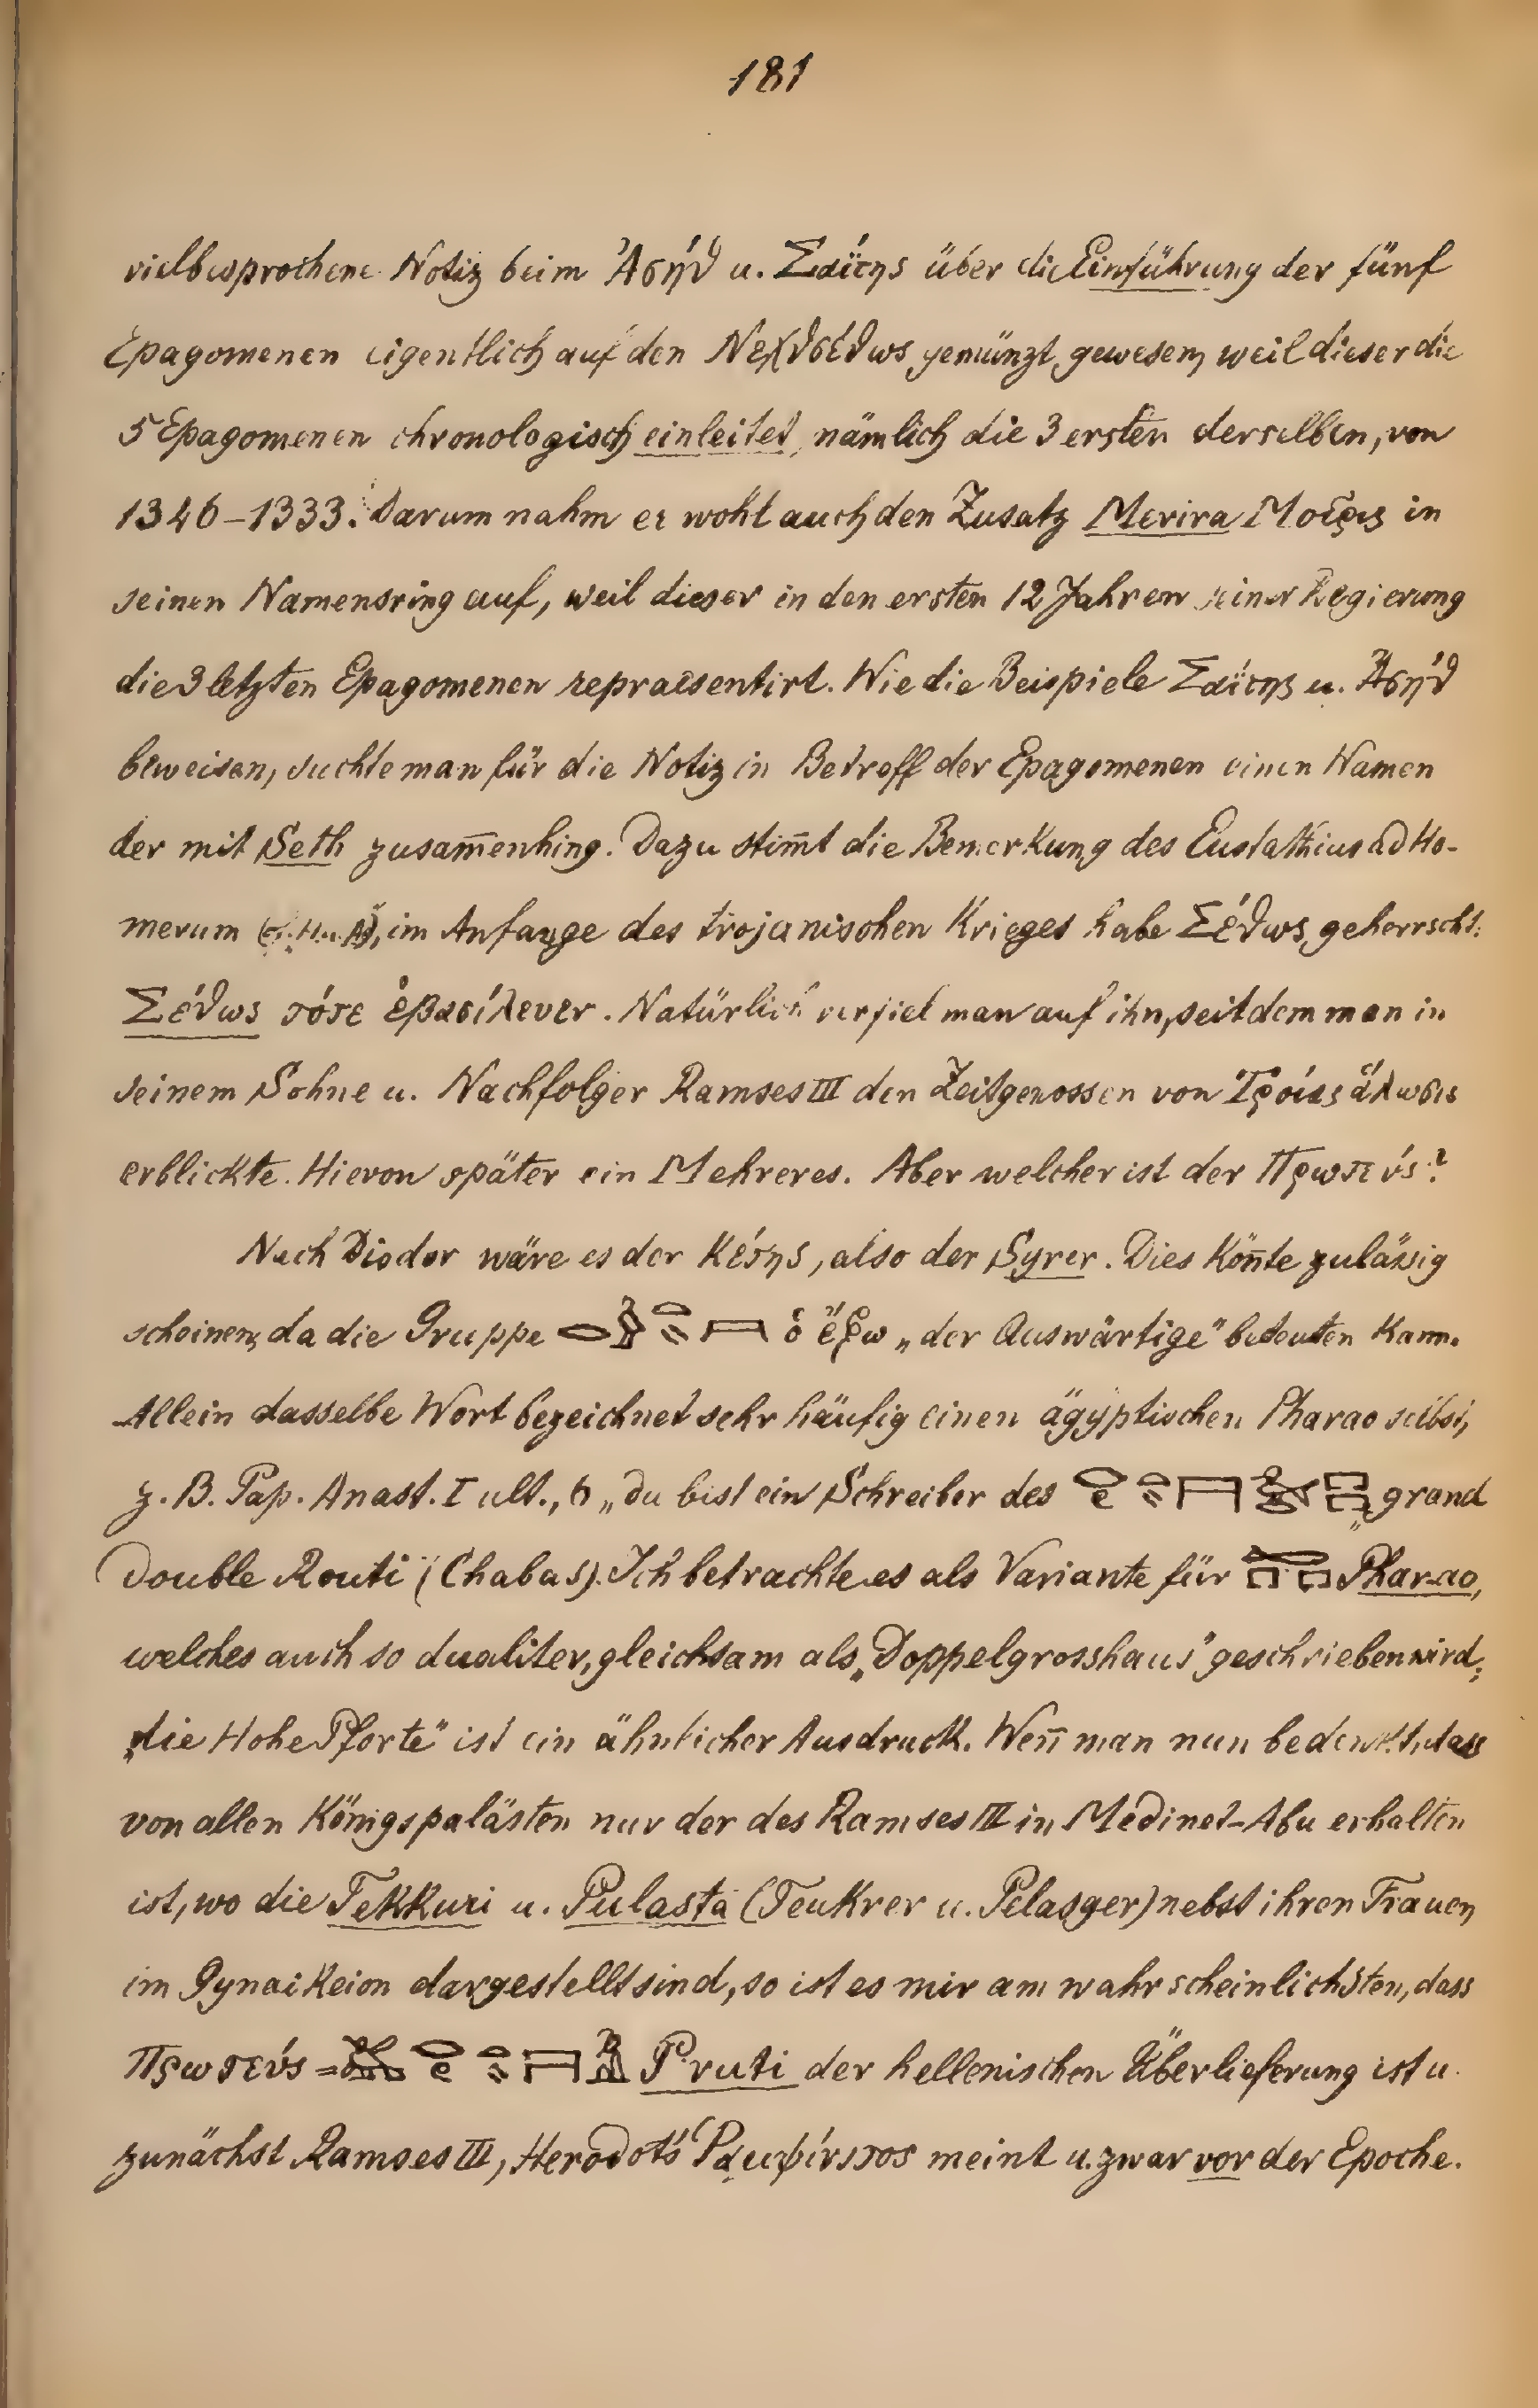 181
vielbesprochene Notiz beim Ἀσήθ u. Σαΐτης über die Einführung der fünf
Epagomenen eigentlich auf den Νεχθσέθως gemünzt gewesen, weil dieser die
5 Epagomenen chronologisch einleitet, nämlich die 3 ersten derselben, von
1346–1333. Darum nahm er wohl auch den Zusatz Merira Μοῖρις in
seinen Namensring auf, weil dieser in den ersten 12 Jahren seiner Regierung
die 3 letzten Epagomenen repraesentirt. Wie die Beispiele Σαΐτης u. Ἀσήθ
beweisen, suchte man für die Notiz in Betreff der Epagomenen einen Namen
der mit Seth zusam̄enhing. Dazu stim̄t die Bemerkung des Eustathius ad Ho-
merum im Anfange des trojanischen Krieges habe Σέθως geherrscht:
Σέθως τότε ἐβασίλευεν. Natürlich verfiel man auf ihn, seitdem man in
seinem Sohne u. Nachfolger Ramses III den Zeitgenossen von Τροίας ἅλωσις
erblickte. Hievon später ein Mehreres. Aber welcher ist der Πρωτεύς?
Nach Diodor wäre es der Κέτης, also der Syrer. Dies kön̄te zuläßig
scheinen, da die Gruppe ὁ ἔξω „der Auswärtige" bedeuten kann.
Allein dasselbe Wort bezeichnet sehr häufig einen ägyptischen Pharao selbst,
z. B. Pap. Anast. I ult., 6 „du bist ein Schreiber des „grand
Double Routi" (Chabas). Ich betrachte es als Variante für Pharao,
welches auch so dualiter, gleichsam als „Doppelgrosshaus" geschrieben wird;
„die Hohe Pforte" ist ein ähnlicher Ausdruck. Wen̄ man nun bedenkt, dass
von allen Königspalästen nur der des Ramses III in Medinet-Abu erhalten
ist, wo die Tekkuri u. Pulasta (Teukrer u. Pelasger) nebst ihren Frauen
im Gynaikeion dargestellt sind, so ist es mir am wahrscheinlichsten, dass
Πρωτεύς = Pruti der hellenischen Überlieferung ist u.
zunächst Ramses III, Herodots Ῥαμψίνιτος meint u. zwar vor der Epoche.